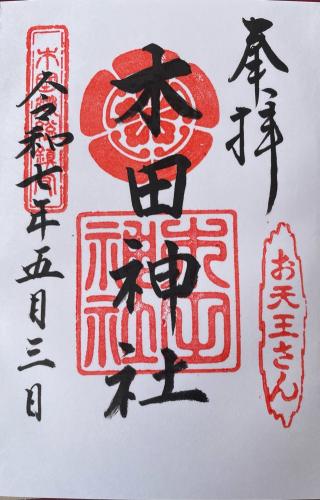 奉拝
お天王さん
木田神社
木田神社
令和七年五月三日